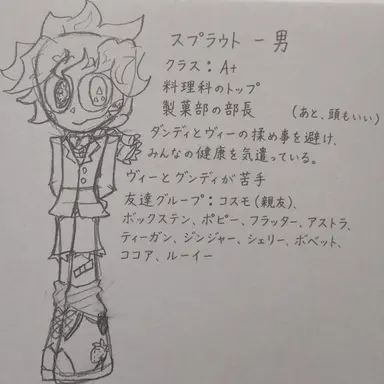 スプラウト ー 男
クラス：A+
料理科のトップ
製菓部の部長　（あと、頭もいい）
ダンディとヴィーの揉め事を避け、
みんなの健康を気遣っている。
ヴィーとダンディが苦手
友達グループ：コスモ（親友）、
ボックステン、ポピー、フラッター、アストラ、
ティーガン、ジンジャー、シェリー、ボベット、
ココア、ルーイー